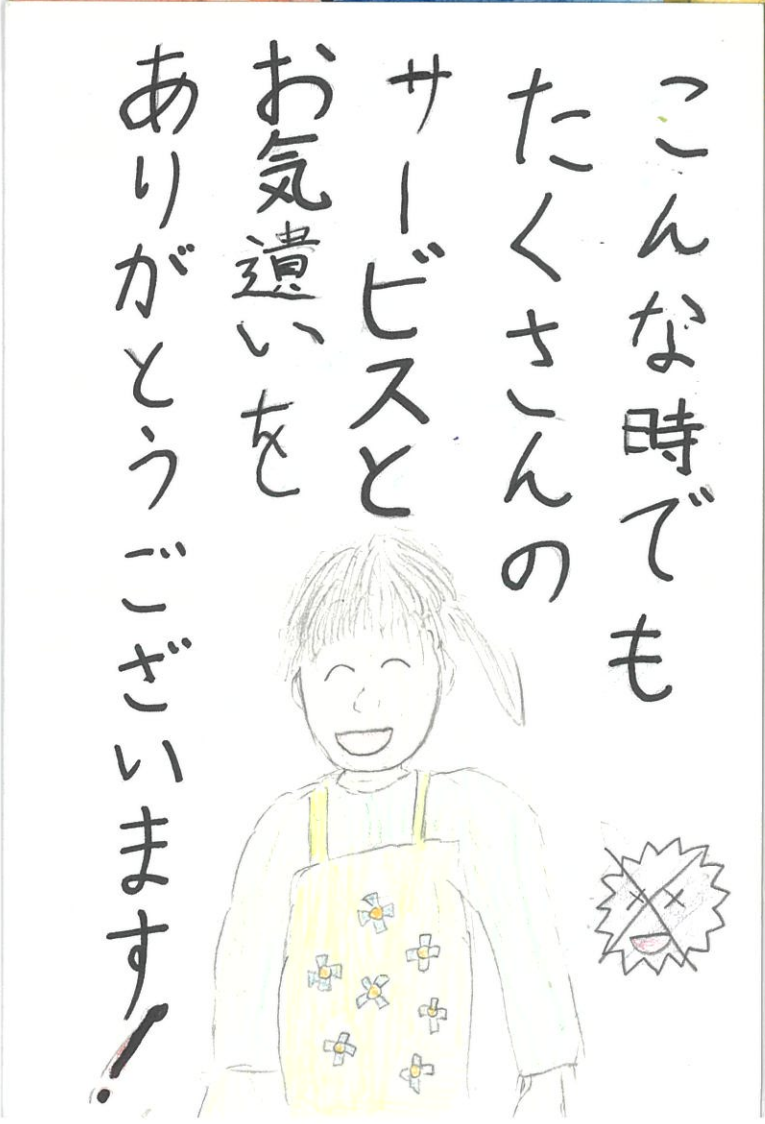 こんな時でも
たくさんの
サービスと
お気遣いを
ありがとうございます!